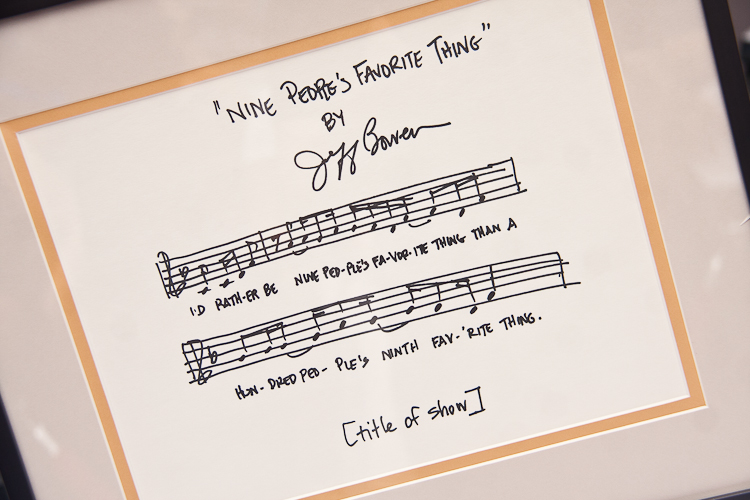 "NINE PEOPLE'S FAVORITE THING"
BY
Jeff Bowen
I'D RATH-ER BE NINE PEO-PLE'S FA-VOR-ITE THING THAN A
HUN-DRED PEO-PLE'S NINTH FAV-'RITE THING.
[title of show]